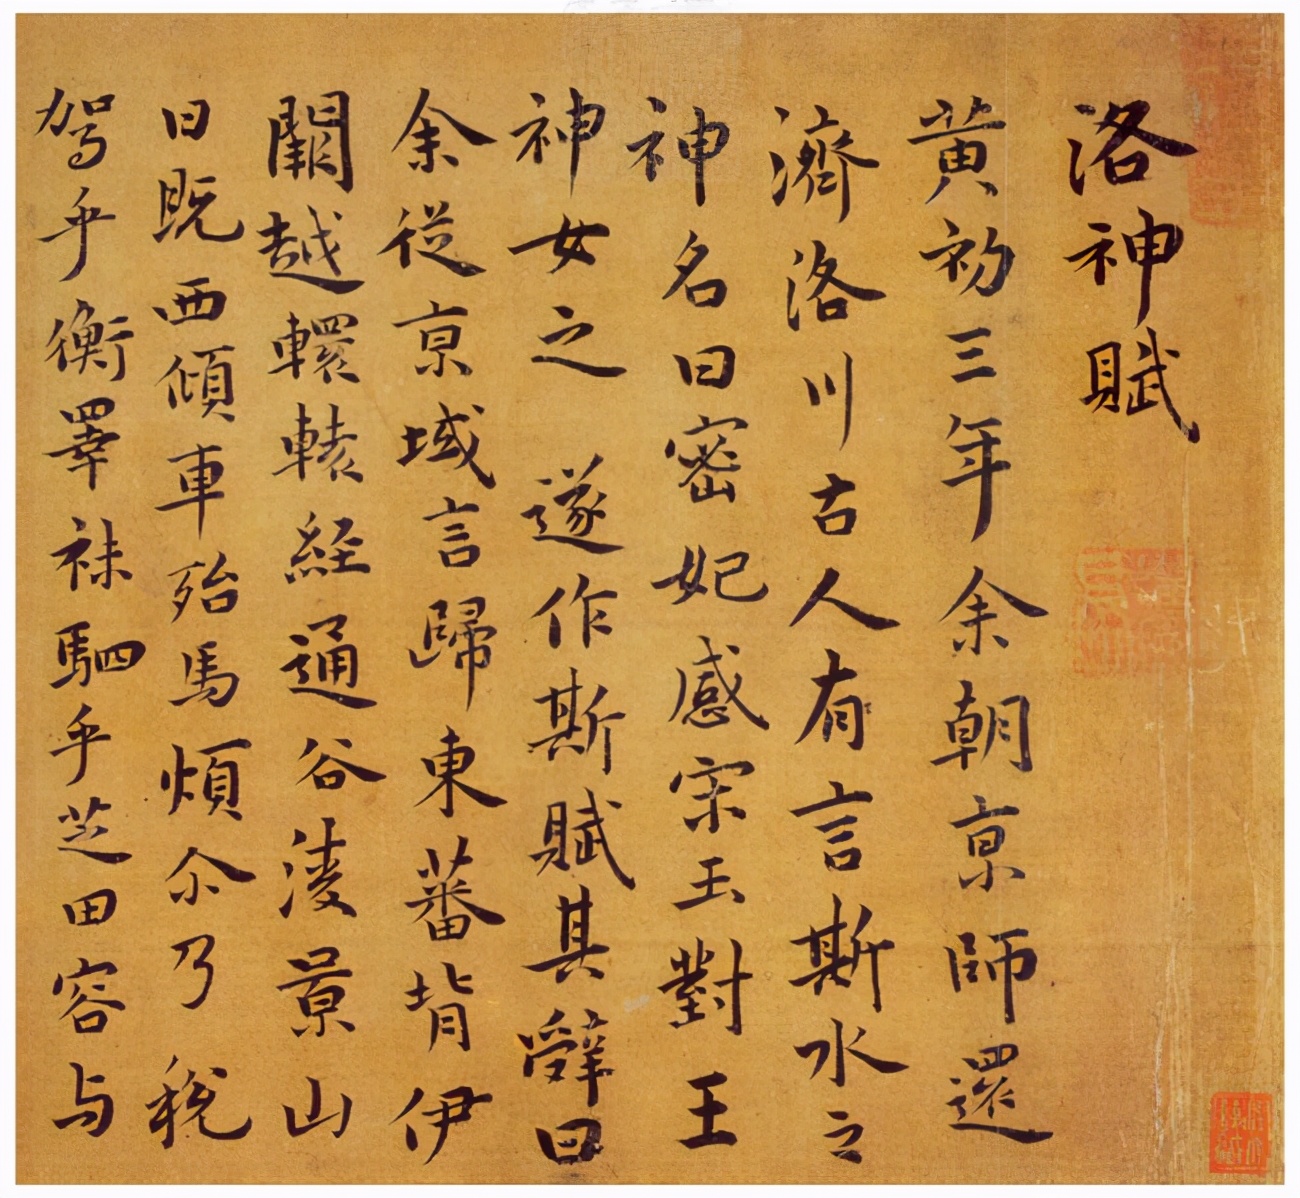 洛神賦
黄初三年余朝京師還
濟洛川古人有言斯水之
神名曰宓妃感宋玉對王
神女之遂作斯賦其辭曰
余従京域言歸東蕃背伊
闕越轘轅経通谷陵景山
日既西傾車殆馬煩尒乃税
駕乎蘅睪秣駟乎芝田容与